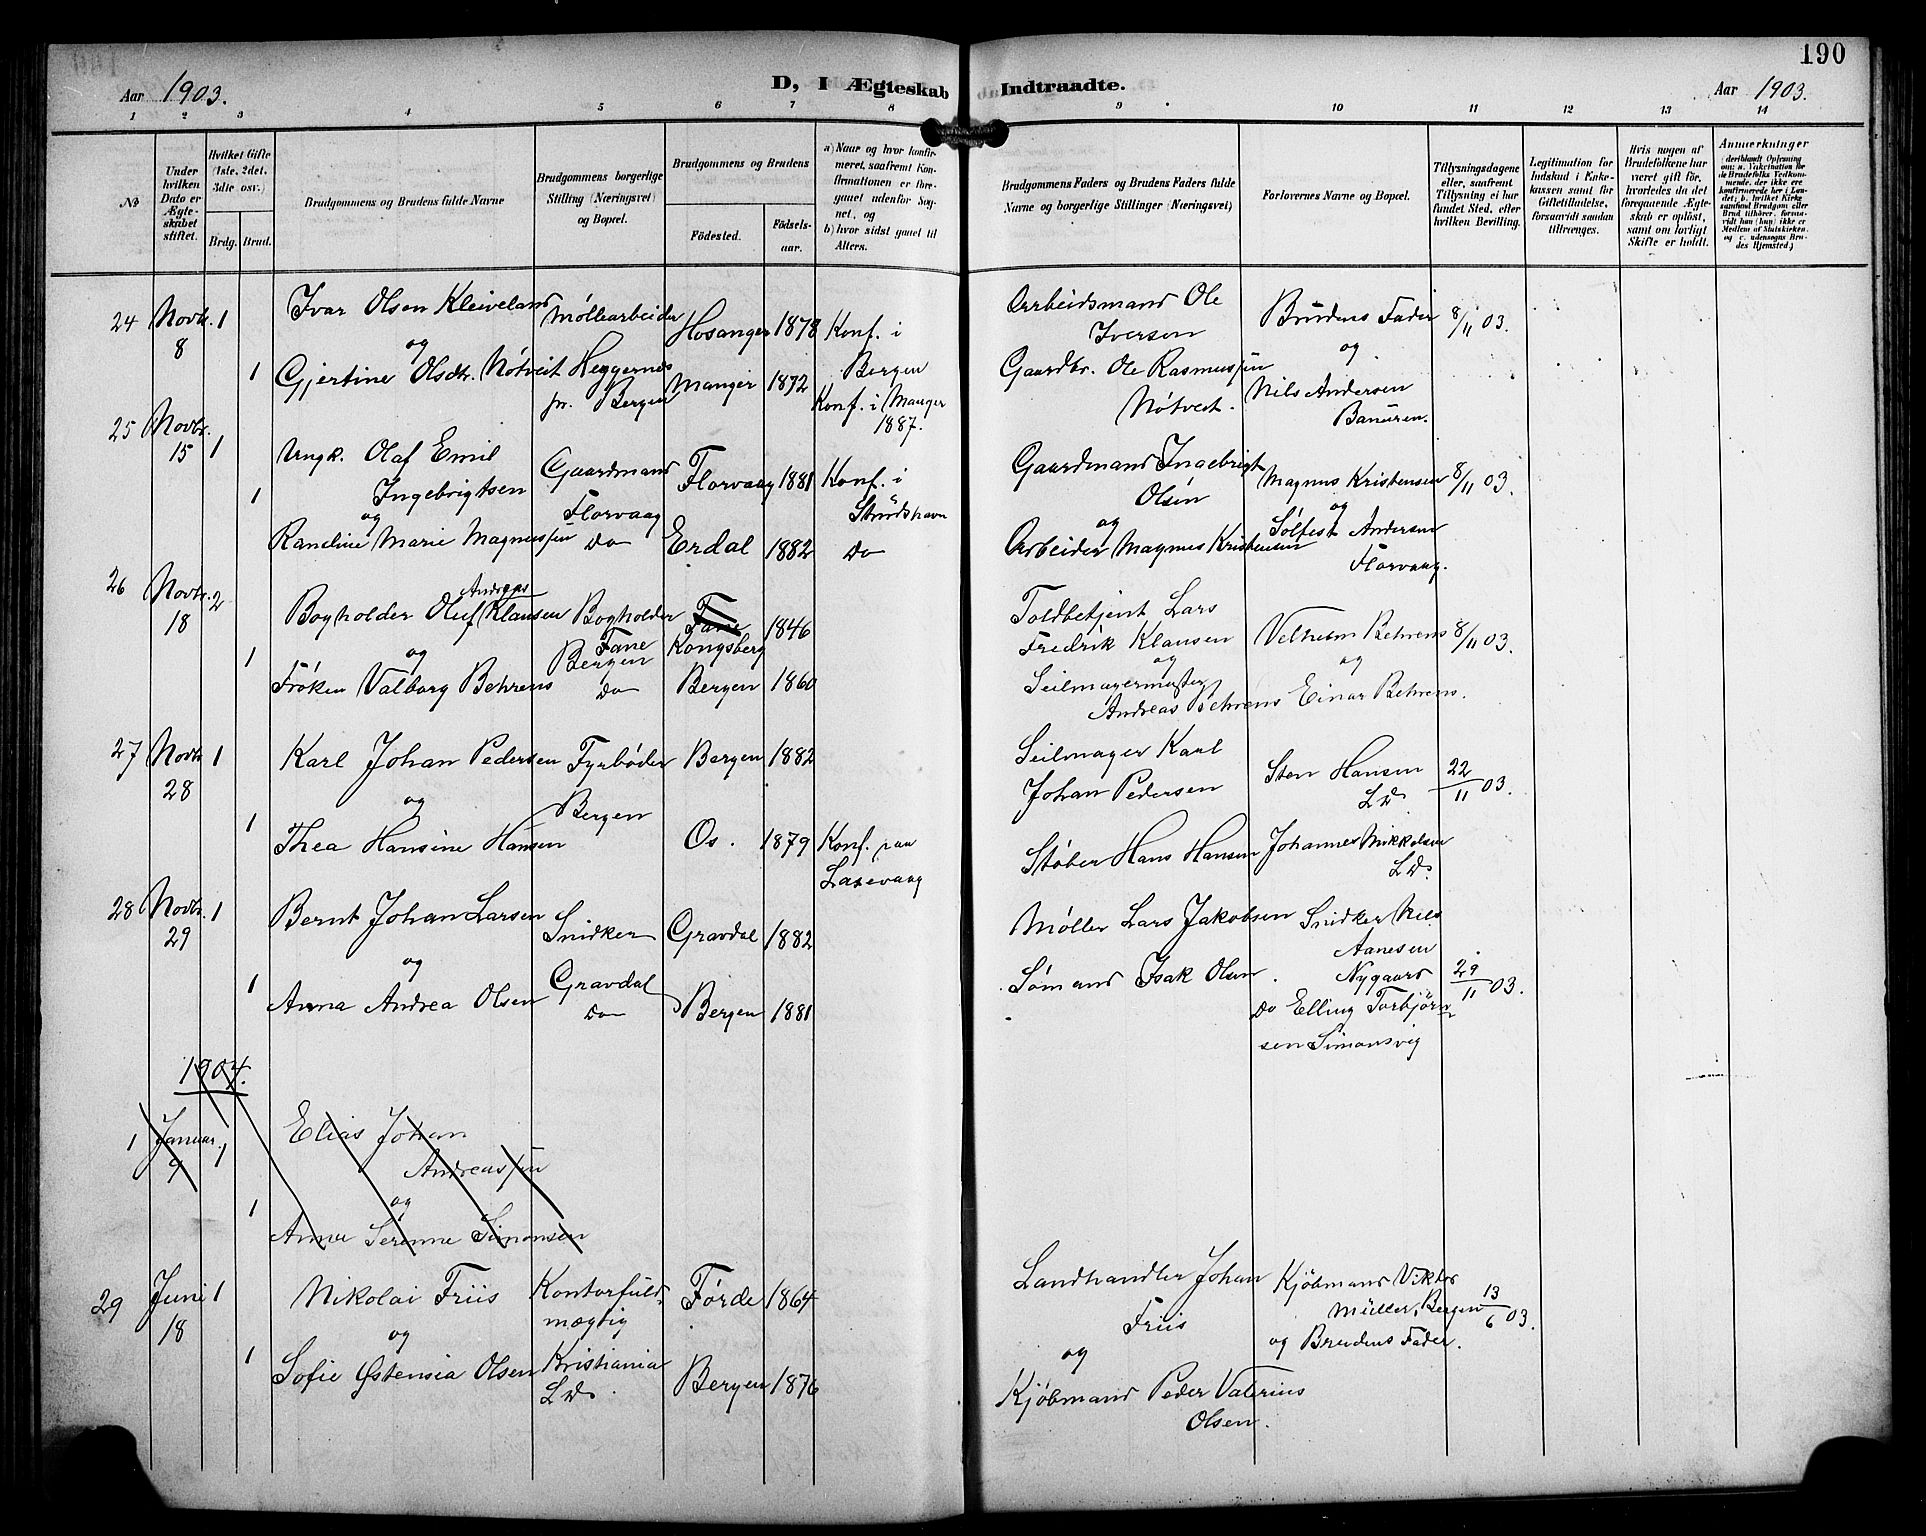 190
Aar 1903.
D, I Ægteskab Indtraadte.
Aar 1903.
1 2 3 4 5 6 7 8 9 10 11 12 13 14
No
Under hvilken Dato er Ægteskabet stiftet.
Hvilket Gifte (1ste, 2det, 3die osv.)
Brdg. Brud.
Brudgommens og Brudens fulde Navne
Brudgommens borgerlige Stilling (Næringsvei) og Bopæl.
Brudgommens og Brudens
Fødested.
Fødselsaar.
a) Naar og hvor konfirmeret, saafremt Konfirmationen er foregaaet udenfor Sognet, og
b) hvor sidst gaaet til Alters.
Brudgommens Faders og Brudens Faders fulde Navne og borgerlige Stillinger (Næringsvei)
Forlovernes Navne og Bopæl.
Tillysningsdagene eller, saafremt Tillysning ei har fundet Sted, efter hvilken Bevilling.
Legitimation for Indskud i Enkekassen samt for Giftetilladelse, forsaavidt saadan tiltrænges.
Hvis nogen af Brudefolkene har været gift før, hvorledes da det foregaaende Ægteskab er opløst, samt om lovligt Skifte er holdt.
Anmerkninger
24 Novbr. 8 1 Ivar Olsen Kleiveland Møllearbeider Hosanger 1878 Konf. i Bergen
og
1 Gjertine Olsdtr. Nøtveit Heggernes pr. Bergen Manger 1872 Konf. i Manger 1887.
Arbeidsmand Ole Iversen
Gaardbr. Ole Rasmussen Nøtveit.
Brudens Fader
og
Nils Andersen
8/11 03.
25 Novbr. 15 1 Ungk. Olaf Emil Ingebrigtsen Gaardmand Florvaag Florvaag 1881 Konf. i
og
1 Randine Marie Magnussen Do Erdal 1882 Do
Gaardmand Ingebrigt Olsen
og
Arbeider Magnus Kristensen
Magnus Kristensen
og
Solfest Andersen
Florvaag.
8/11 03.
26 Novbr. 18 2 Bogholder Oluf Andreas Klausen Bogholder Fane Bergen Fane Kongsberg 1846
og
1 Frøken Valborg Behrens Do Bergen 1860
Toldbetjent Lars Fredrik Klausen
og
Seilmagermester
Andreas Behrens
Velhelm Behrens
og
Einar Behrens.
8/11 03.
27 Novbr 28 1 Karl Johan Pedersen Fyrbøder Bergen Bergen 1882
og
1 Thea Hansine Hansen Os. 1879 Konf. paa Laxevaag
Seilmager Karl Johan Pedersen
Støber Hans Hansen
Sten Hansen
Ld
Johannes Mikkelsen
Ld.
22/11 03.
28 Novbr. 29 1 Bernt Johan Larsen Snidker Gravdal Gravdal 1882
og
1 Anna Andrea Olsen Do Bergen 1881
Møller Lars Jakobsen
Sømand Isak Olsen
Snidker Nils
Aanesen
Nygaard
Do Elling Torbjørnsen Simonsvig
29/11 03.
1904.
1 Januar. 9 1 Elias Johan
Andreassen
og
1 Anne Serenne Simonsen
29 Juni 18 1 Nikolai Friis Kontorfuldmægtig Kristiania Førde 1864
og
1 Sofie Østensia Olsen Ld. Bergen 1876
Landhandler Johan Friis
og
Kjøbmand Peder Valerius
Olsen.
Kjøbmand Viktor
Müller, Bergen
og Brudens Fader.
13/6 03.